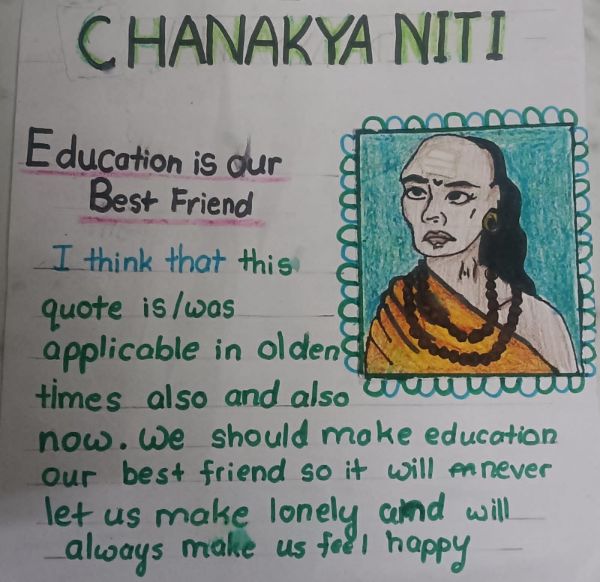 CHANAKYA NITI
Education is our
Best Friend
I think that this
quote is/was
applicable in olden
times also and also
now. We should make education
our best friend so it will never
let us make lonely and will
always make us feel happy